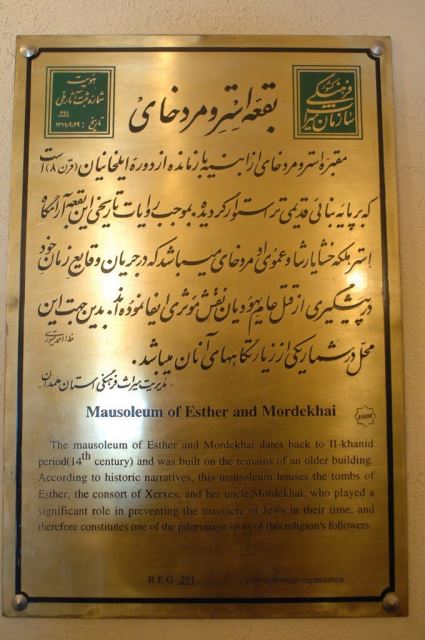 هویت
شماره ثبت آثار ملی
۲۹۱
تاریخ :
بقعه استر و مردخای
سازمان میراث فرهنگی کشور
مقبرهٔ استر و مردخای از ابنیه بازمانده از دورهٔ ایلخانیان (قرن ۸) است
که بر پایه بنائی قدیمی تر استوار گردیده. بموجب روایات تاریخی این بقعه آرامگاه
استر ملکه خشایارشا و عموی او مردخای میباشد که در جریان وقایع زمان خود
در پیشگیری از قتل عام یهودیان نقش موثری ایفا نموده اند. بدین جهت این
محل در شمار یکی از زیارتگاههای آنان میباشد.
مدیریت میراث فرهنگی استان همدان
Mausoleum of Esther and Mordekhai
The mausoleum of Esther and Mordekhai dates back to Il-khanid
period(14th century) and was built on the remains of an older building.
According to historic narratives, this mausoleum houses the tombs of
Esther, the consort of Xerxes, and her uncle,Mordekhai, who played a
significant role in preventing the massacre of Jews in their time, and
therefore constitutes one of the pilgrimage spots of this religion's followers.
R.E.G 291 cultural heritage organization